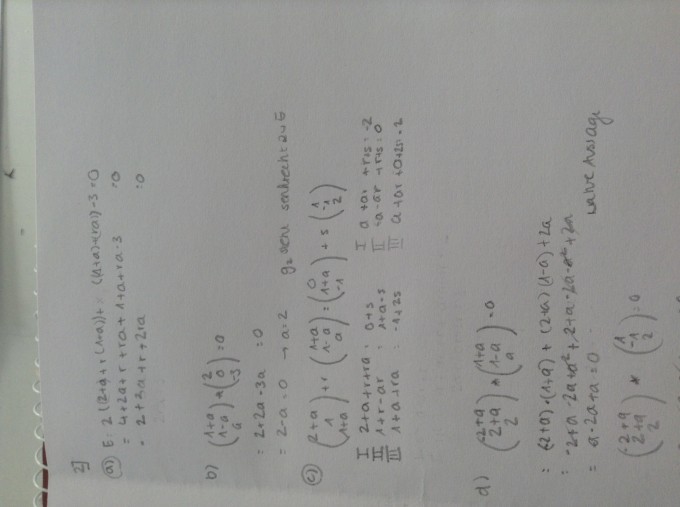 2]
(a) E: 2(2+a+r(1+a))+ (1+a)+(ra))-3=0
= 4+2a+r+ra+1+a+ra-3 =0
= 2+3a+r+2ra =0
b) (1+a / 1-a / a) * (2 / 0 / -3) = 0
= 2+2a-3a = 0
= 2-a=0 → a=2 g₂ senkrecht zu E
(c) (2+a / 1 / 1+a) + r (1+a / 1-a / a) = (0 / 1+a / -1) + s (1 / -1 / 2)
I 2+a+r+ra = 0+s I a +ar +r-s = -2
II 1+r-ar = 1+a-s II -a-ar +r+s = 0
III 1+a+ra = -1+2s III a +ar +0+2s = 2
d) (-2+a / 2+a / 2) * (1+a / 1-a / a) = 0
= (-2+a)*(1+a) + (2+a)(1-a)+2a
= -2+a-2a+a²+2+a-2a-a²+2a
= a-2a+a=0 wahre Aussage
(-2+a / 2+a / 2) * (1 / -1 / 2) = 0